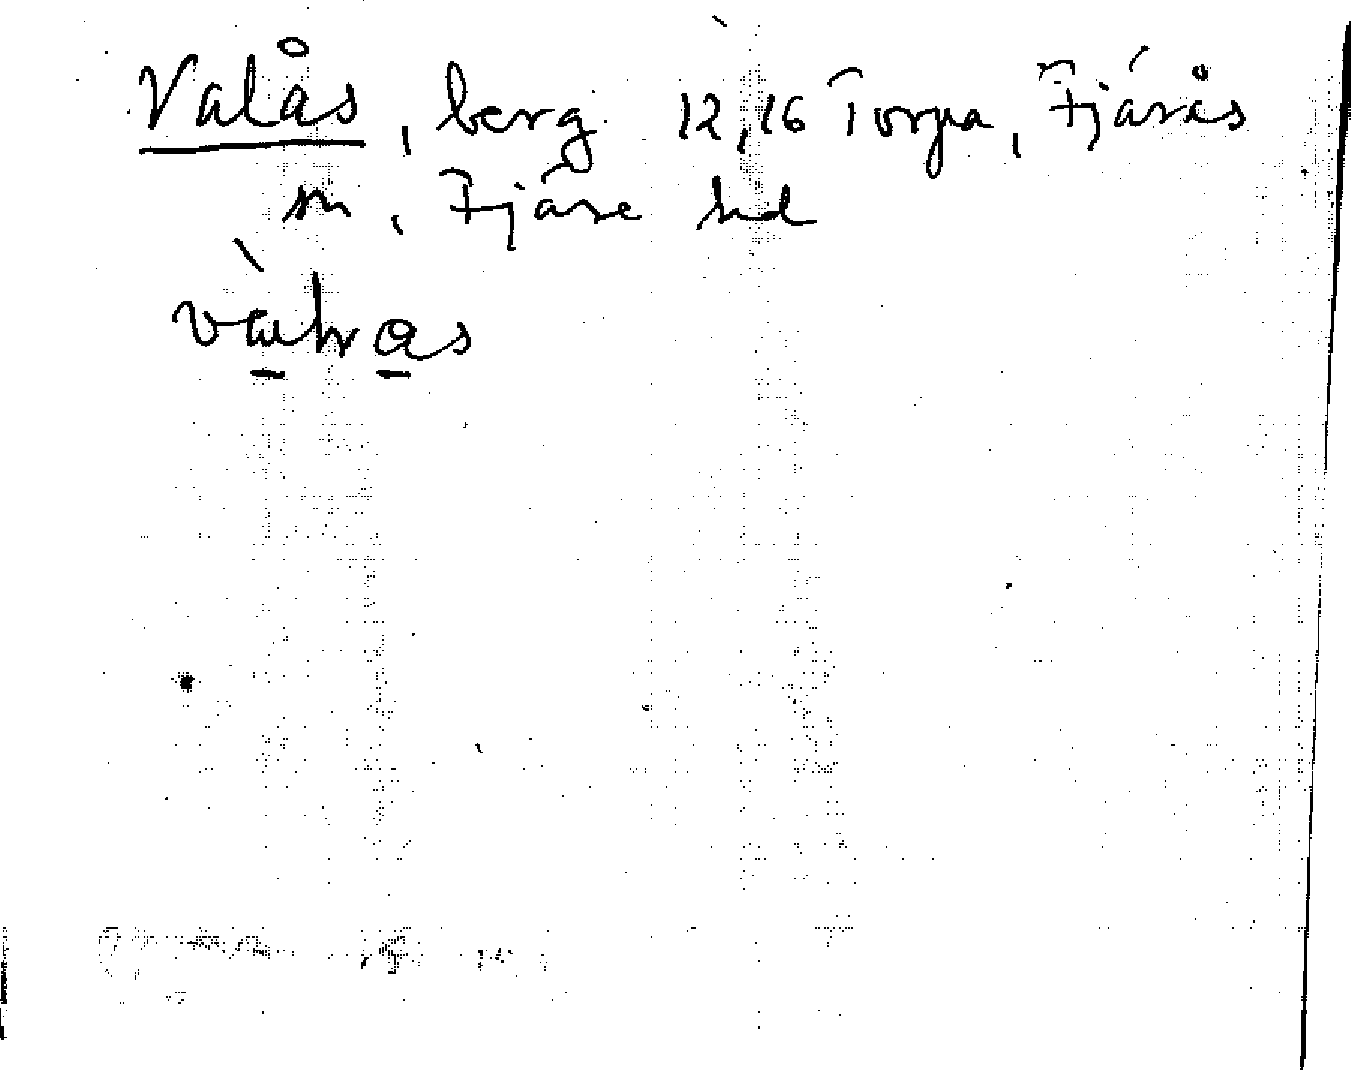 Valås, berg 12,16 Torpa, Fjärås
sn, Fjäre hd